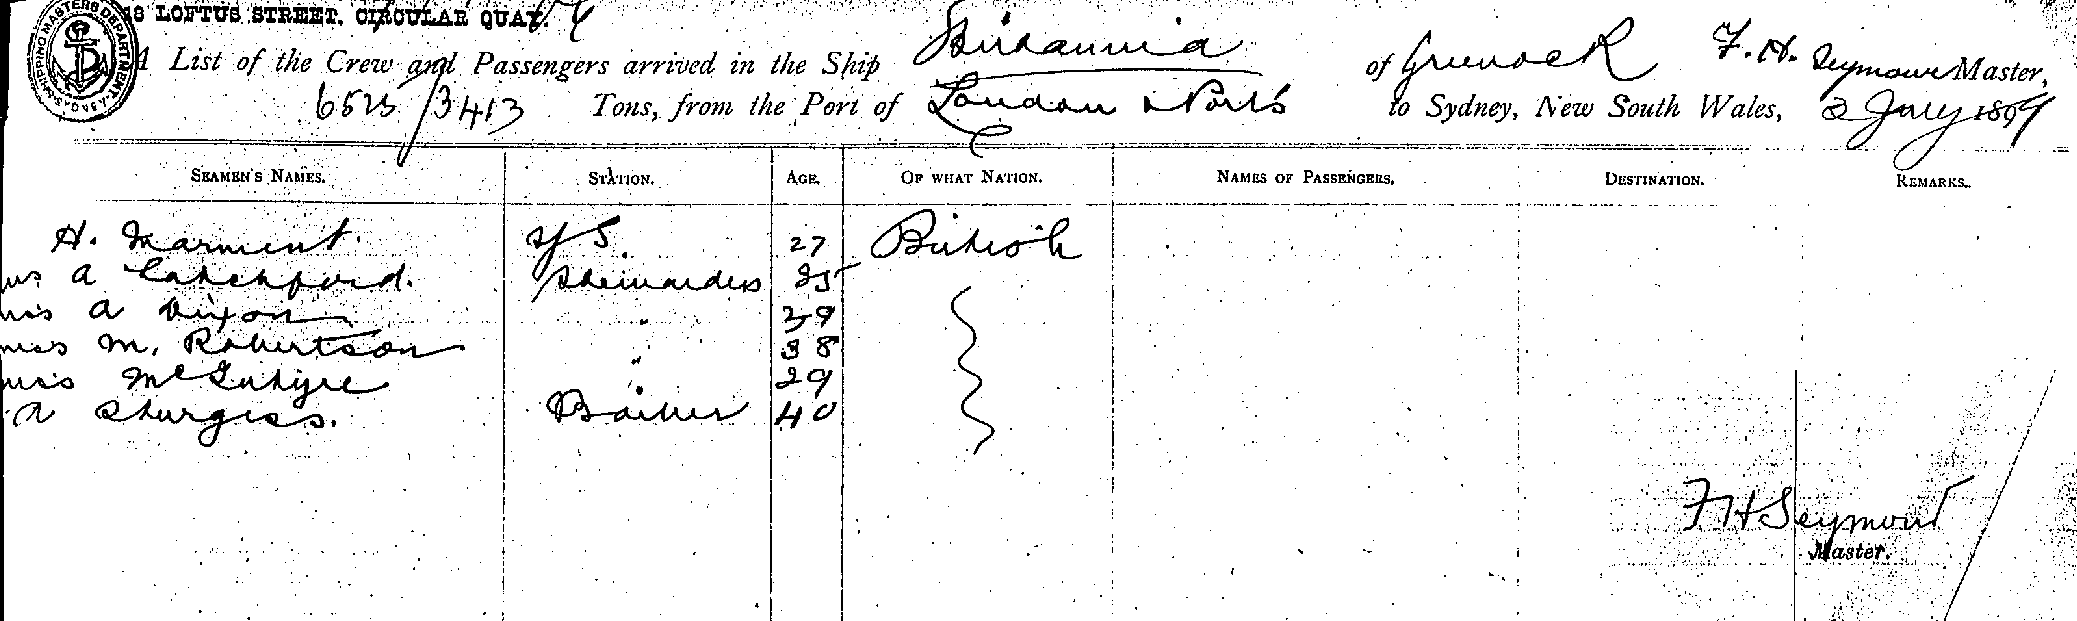 LOFTUS STREET, CIRCULAR QUAY.
SHIPPING MASTERS DEPARTMENT
A List of the Crew and Passengers arrived in the Ship Britannia of Greenock F. H. Seymour Master,
6525/3413 Tons, from the Port of London & Ports to Sydney, New South Wales, 2 July 1897
SEAMEN'S NAMES. STATION. AGE. OF WHAT NATION. NAMES OF PASSENGERS. DESTINATION. REMARKS.
H. Marment 27 British
A Catchpord. Stewardess 35
A Dixon " 39
Miss M. Robertson " 38
McIntyre " 29
A Sturgess. Barber 40
F H Seymour
Master.